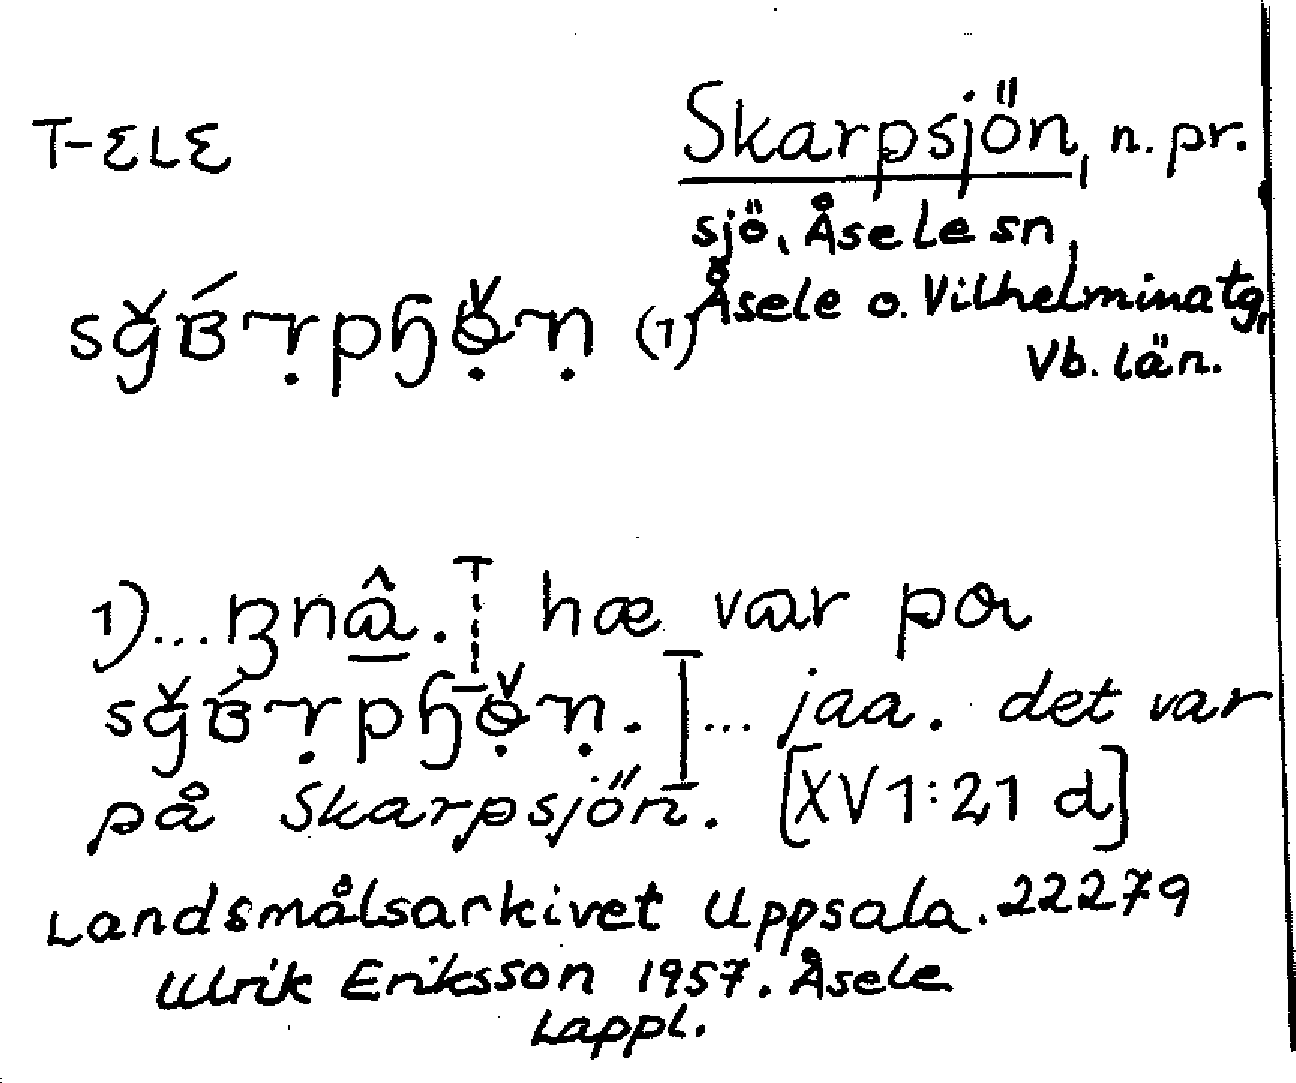 T-ELE
Skarpsjön, n. pr.
sjö, Åsele sn,
Åsele o. Vilhelmina tg,
Vb. län.
(1)
1)... hæ var på
... jaa. det var
på Skarpsjön. [XV1:21 d]
Landsmålsarkivet Uppsala. 22279
Ulrik Eriksson 1957. Åsele
Lappl.